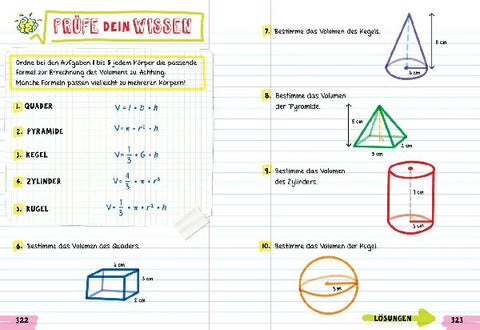 PRÜFE DEIN WISSEN
Ordne bei den Aufgaben 1 bis 5 jedem Körper die passende
Formel zur Errechnung des Volumens zu. Achtung:
Manche Formeln passen vielleicht zu mehreren Körpern!
1. QUADER
V = l · b · h
2. PYRAMIDE
V = π · r² · h
3. KEGEL
V = 1/3 · G · h
4. ZYLINDER
V = 4/3 · π · r³
5. KUGEL
V = 1/3 · π · r² · h
6. Bestimme das Volumen des Quaders.
322
7. Bestimme das Volumen des Kegels.
8. Bestimme das Volumen
der Pyramide.
9. Bestimme das Volumen
des Zylinders.
10. Bestimme das Volumen der Kugel.
LÖSUNGEN
323